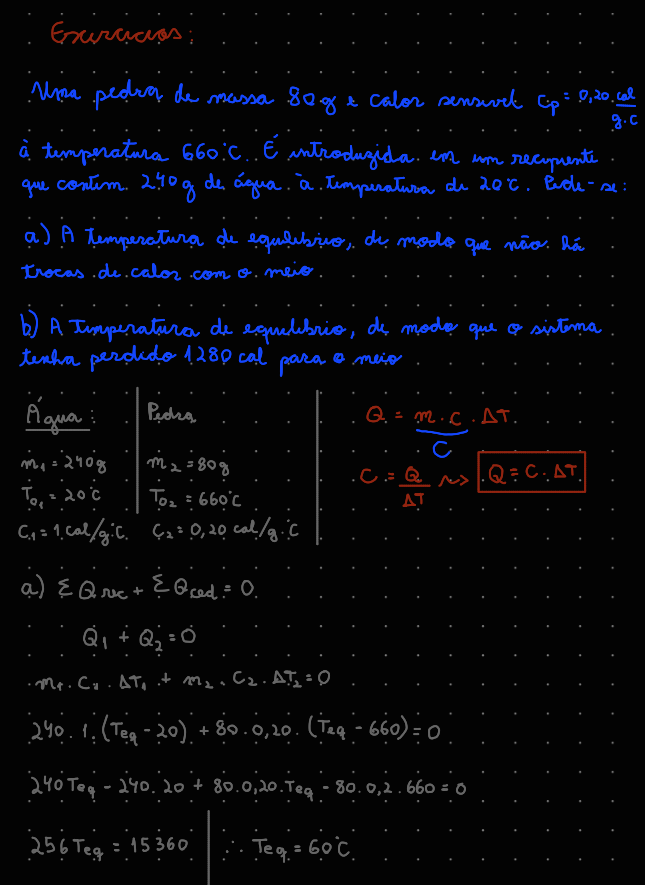 Exercícios:
Uma pedra de massa 80g e calor sensível cp = 0,20 cal/g.c
à temperatura 660°C. É introduzida em um recipiente
que contém 240g de água à temperatura de 20°C. Pede-se:
a) A temperatura de equilíbrio, de modo que não há
trocas de calor com o meio
b) A temperatura de equilíbrio, de modo que o sistema
tenha perdido 1280 cal para o meio
Água: Pedra Q = m . c . ΔT
C
m1 = 240g m2 = 80g C = Q/ΔT ⇝ Q = C . ΔT
T01 = 20°C T02 = 660°C
C1 = 1 cal/g.°C C2 = 0,20 cal/g.°C
a) Σ Qrec + Σ Qced = 0
Q1 + Q2 = 0
m1 . C1 . ΔT1 + m2 . C2 . ΔT2 = 0
240 . 1 . (Teq - 20) + 80 . 0,20 . (Teq - 660) = 0
240 Teq - 240 . 20 + 80 . 0,20 . Teq - 80 . 0,2 . 660 = 0
256 Teq = 15360 ∴ Teq = 60°C